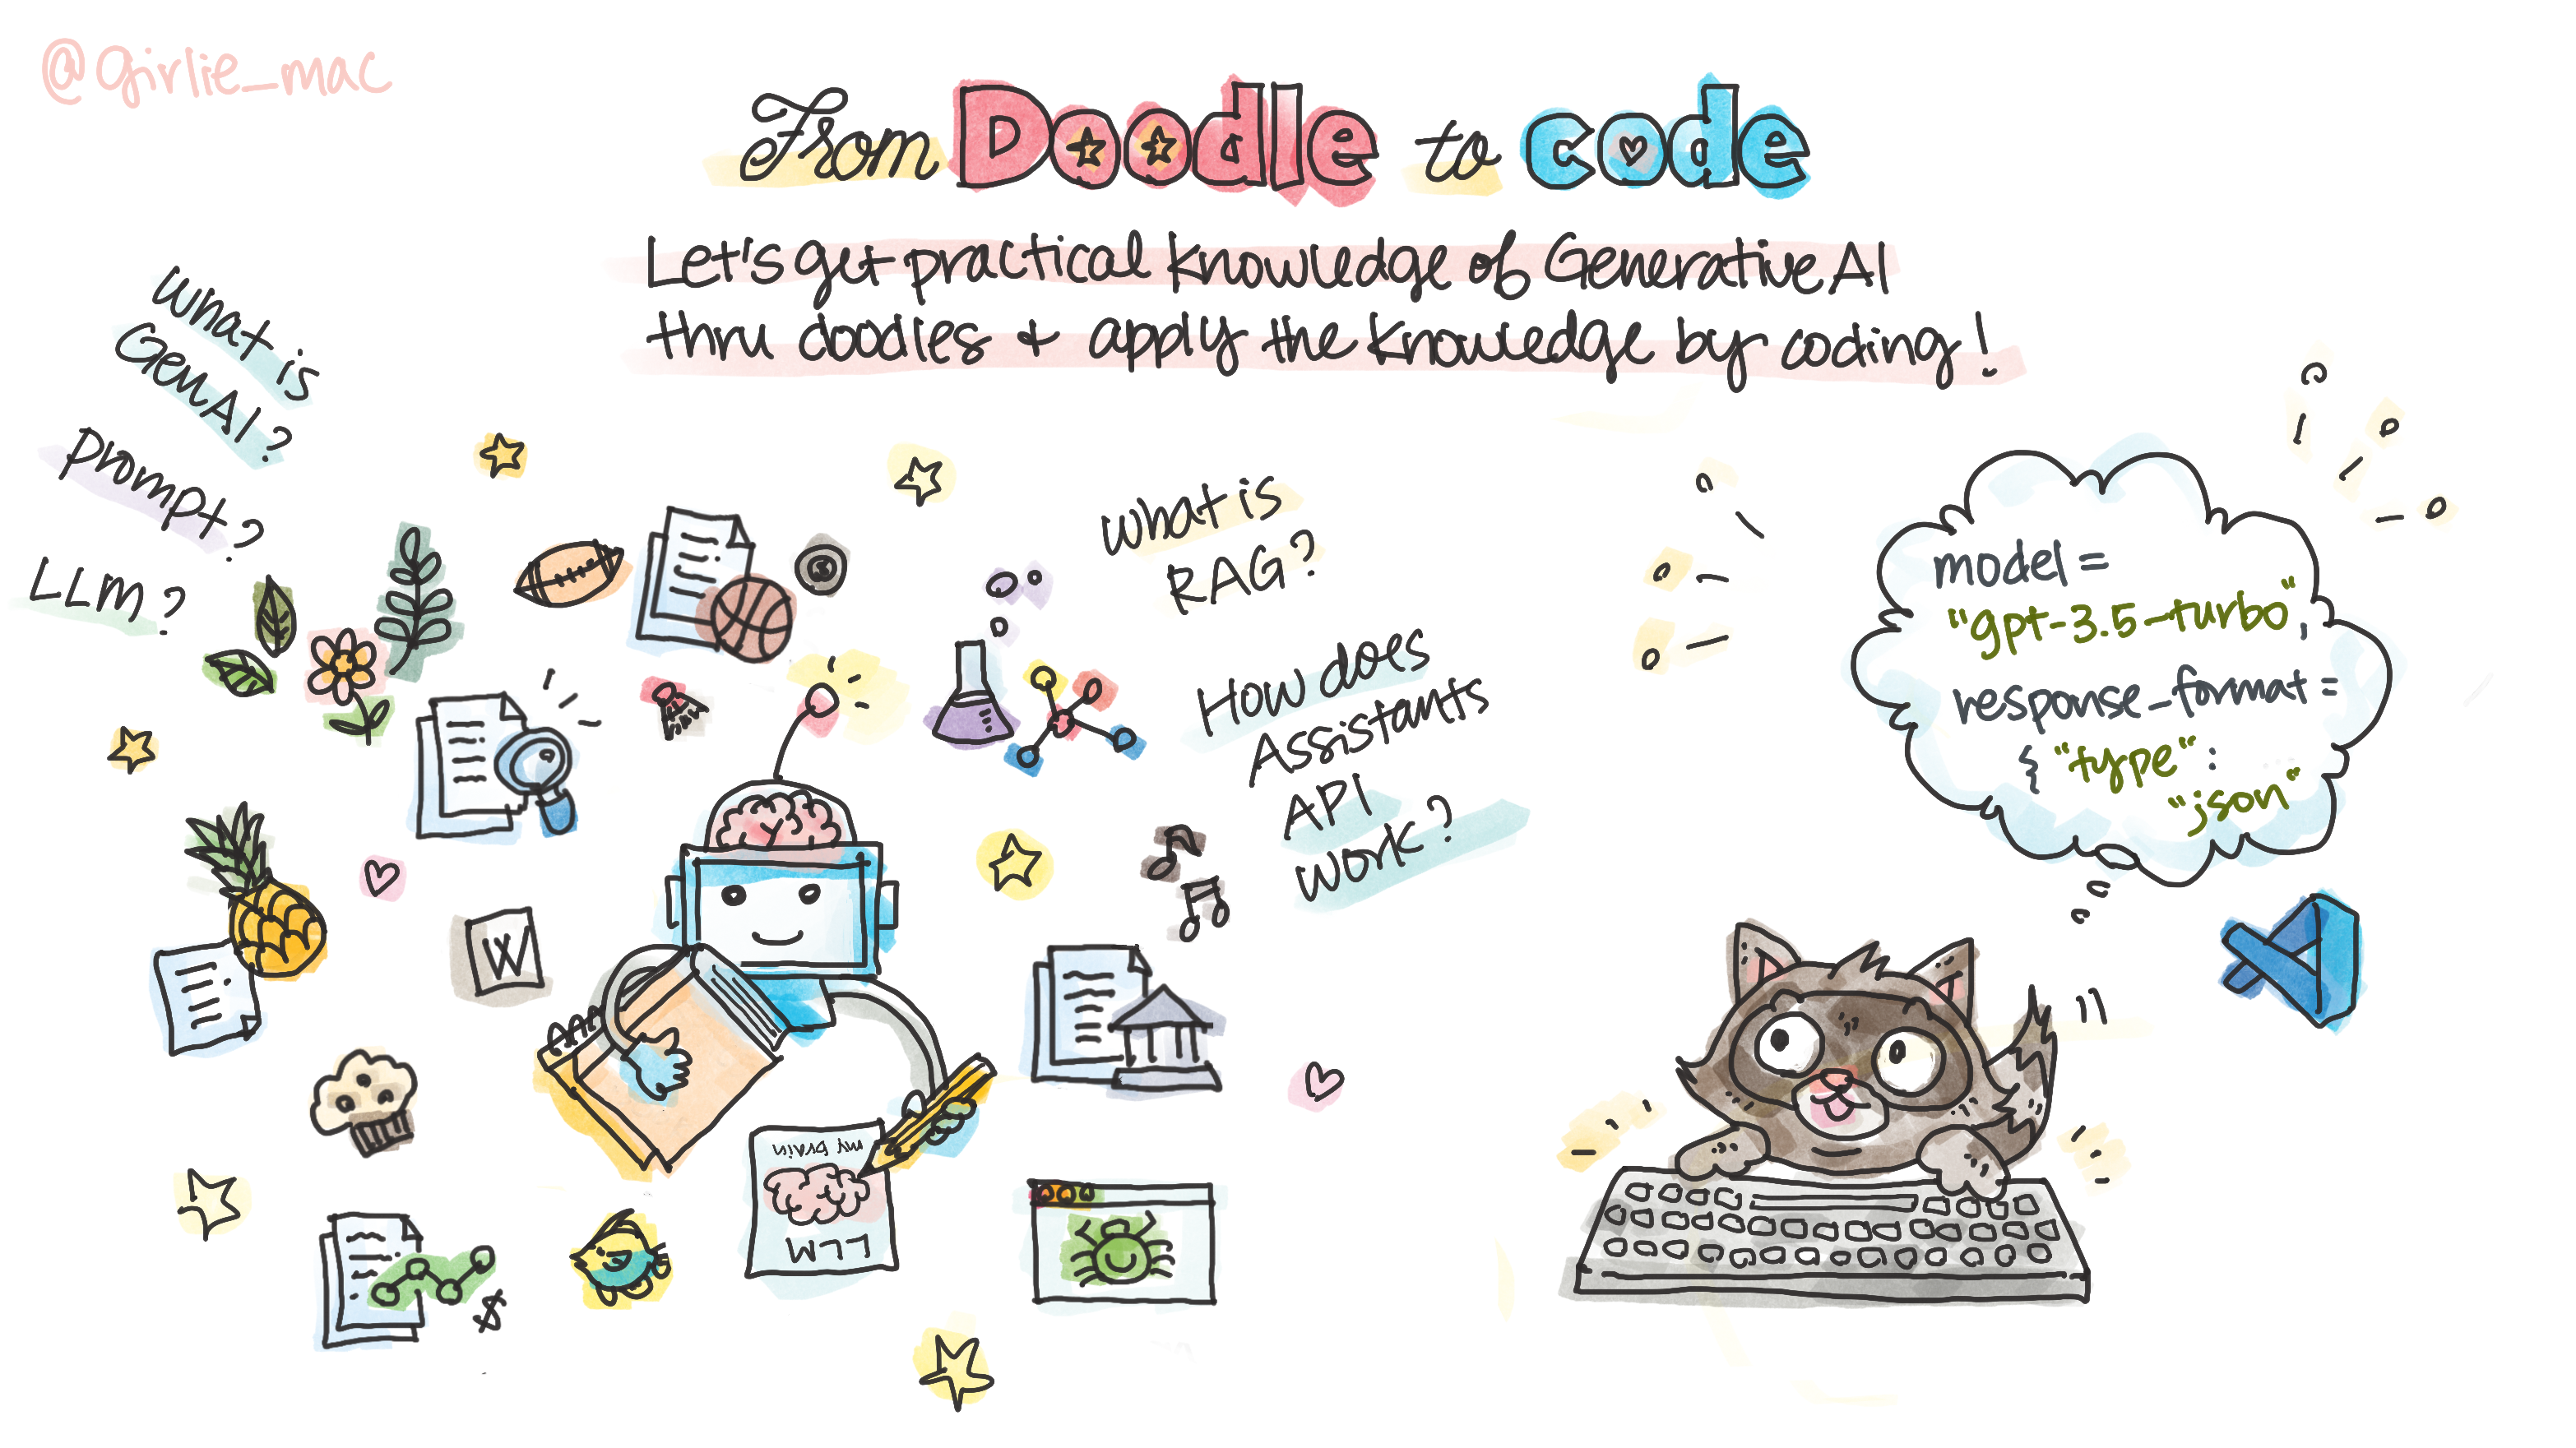 @girlie_mac
From Doodle to code
Let's get practical knowledge of Generative AI
thru doodles + apply the knowledge by coding!
What is
GenAI?
prompt?
LLM?
What is
RAG?
How does
Assistants
API
work?
model =
"gpt-3.5-turbo",
response_format =
{ "type" :
"json"
W
my brain
LLM
$